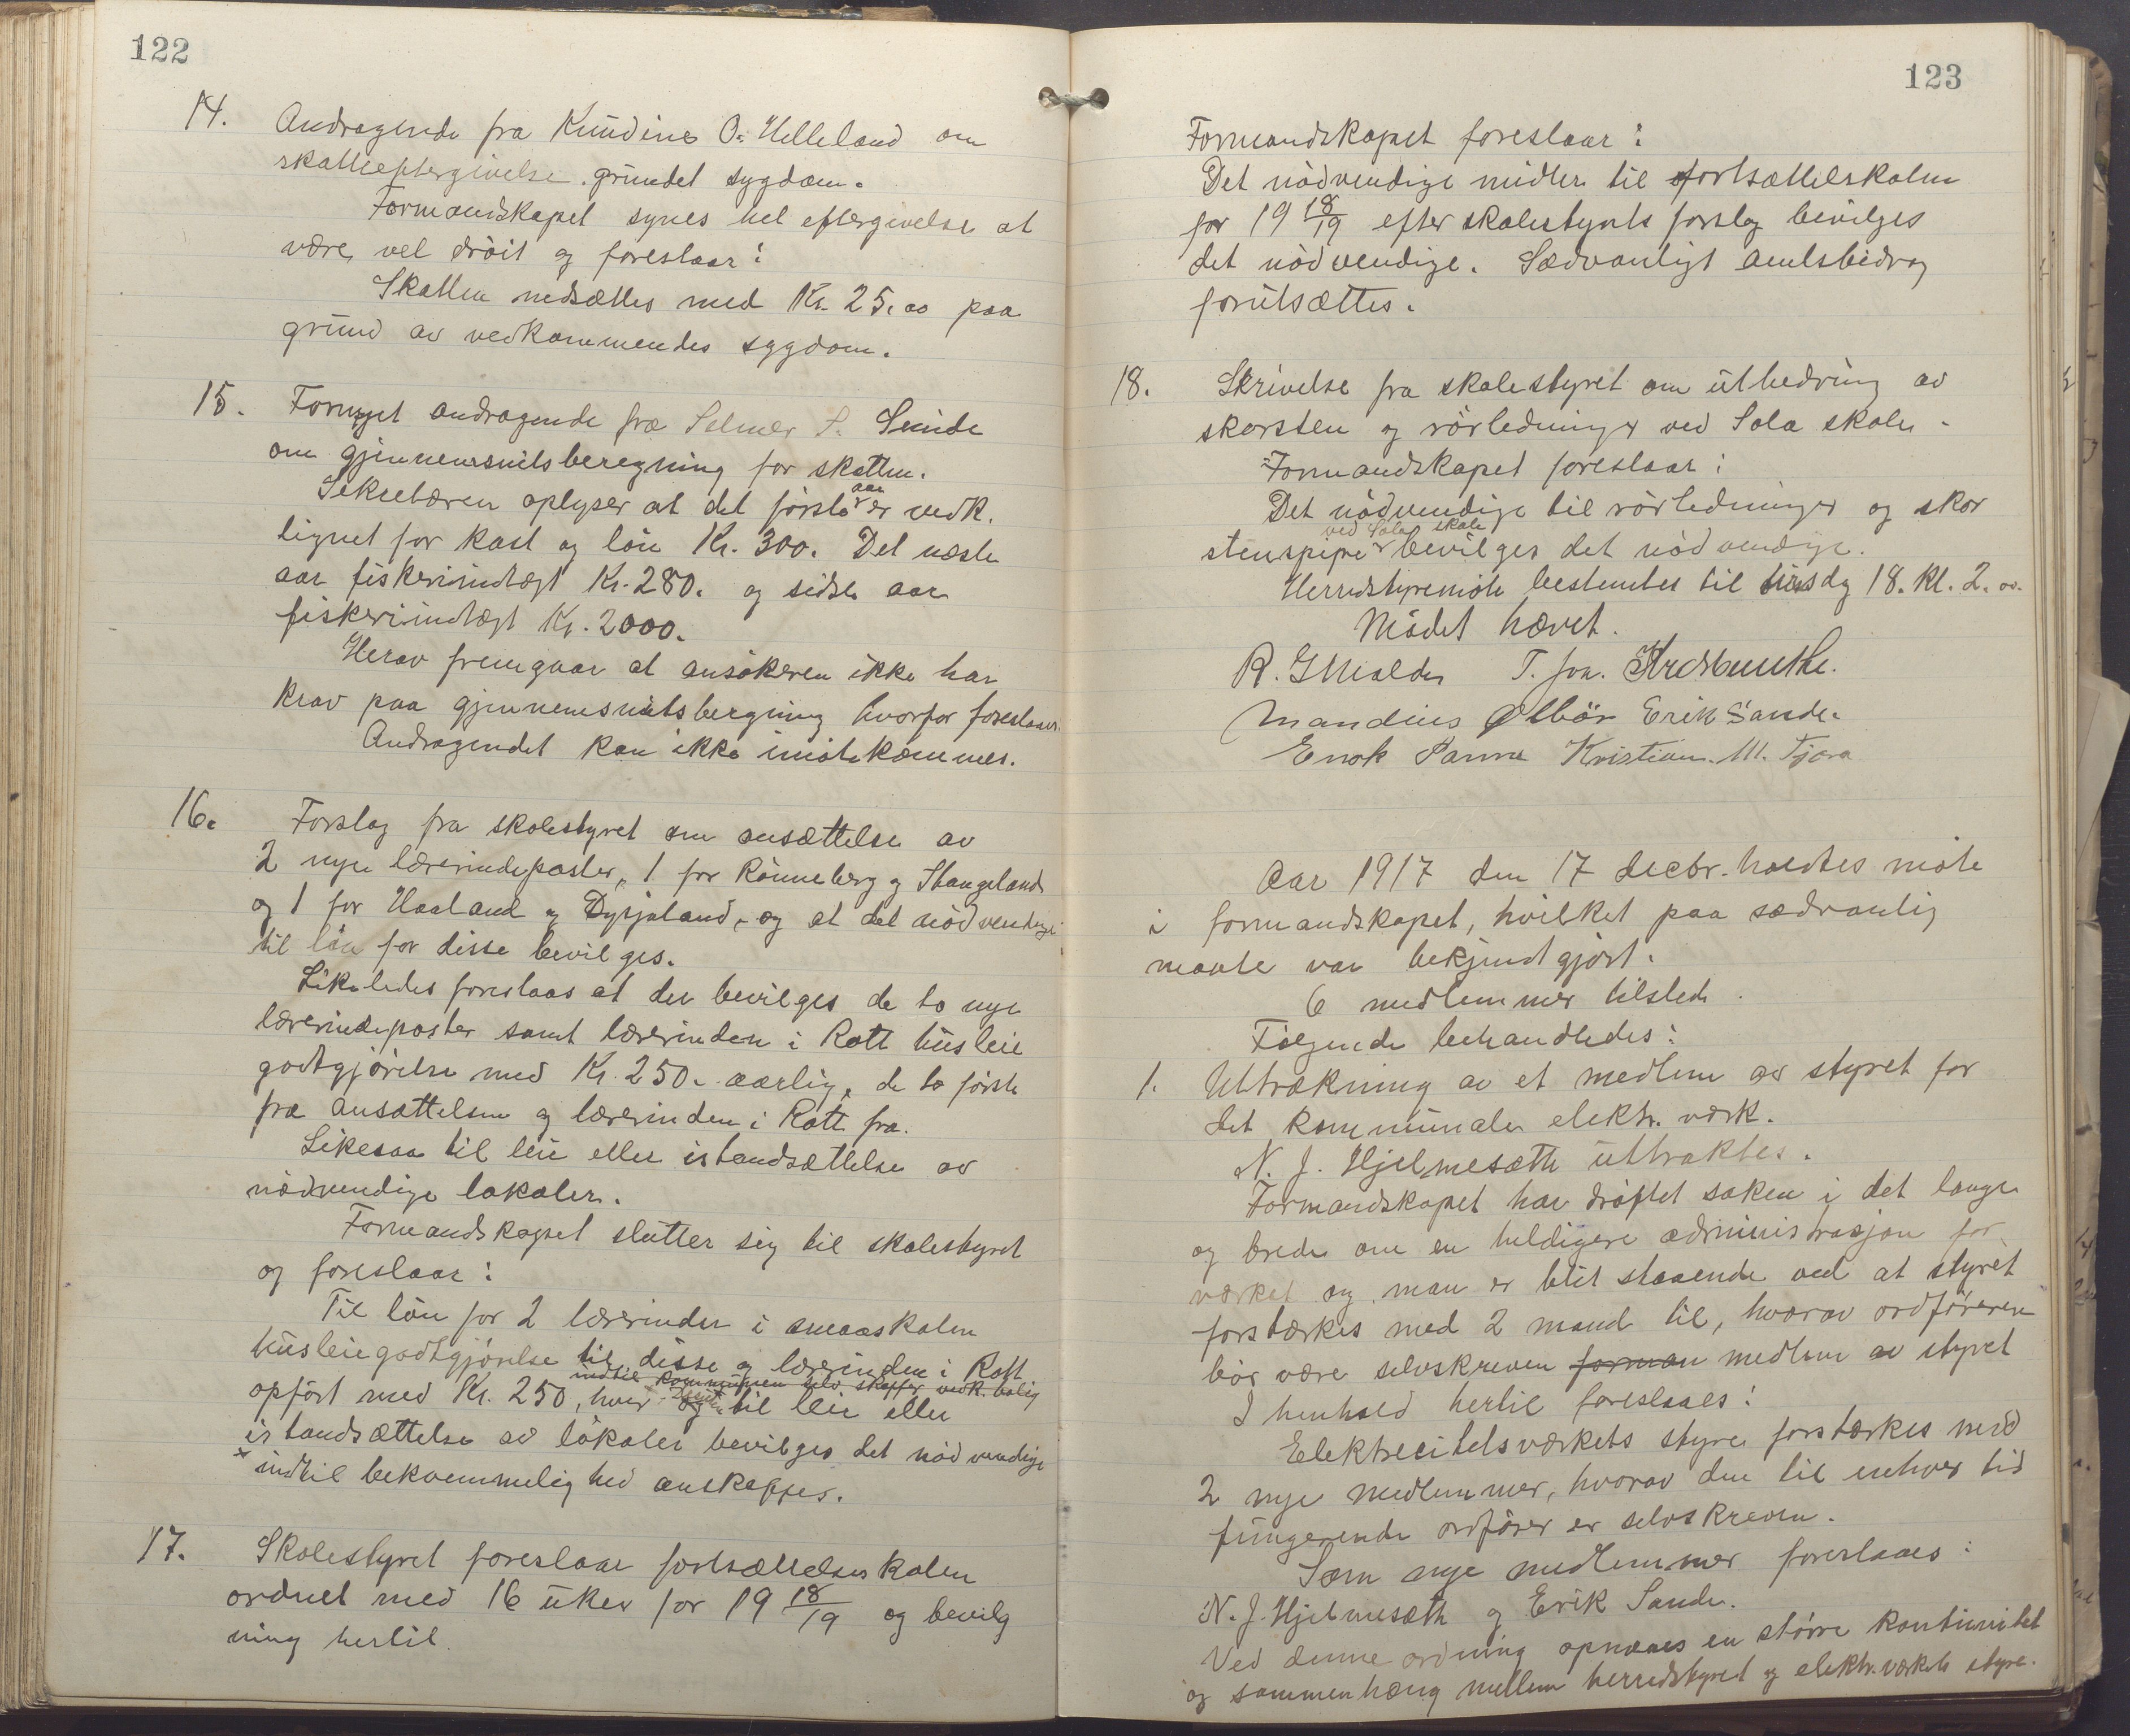 122
14. Andragende fra Kundine O. Helleland om
skatteeftergivelse grundet sygdom.
Formandskapet synes hel eftergivelse at
være vel drøit og foreslaar:
Skatten nedsættes med Kr. 25.00 paa
grund av vedkommendes sygdom.
15. Fornyet andragende fra Selmer S. Sunde
om gjennemsnitsberegning for skatten.
Sekretæren oplyser at det første aar er vedk.
lignet for kost og løn Kr. 300. Det næste
aar fiskeriindtægt Kr. 280. og sidste aar
fiskeriindtægt Kr. 2000.
Herav fremgaar at ansøkeren ikke har
krav paa gjennemsnitsbergning hvorfor foreslaaes
Andragendet kan ikke imøtekommes.
16. Forslag fra skolestyret om ansættelse av
2 nye lærerindeposter, 1 for Rønneberg og Stangeland
og 1 for Haaland og Dysjaland, og at det nødvendige
til løn for disse bevilges.
Likeledes foreslaas at der bevilges de to nye
lærerindeposter samt lærerinden i Rott husleie
godtgjørelse med Kr. 250.- aarlig, de to første
fra ansættelsen og lærerinden i Rott fra.
Likesaa til leie eller istandsættelse av
nødvendige lokaler.
Formandskapet slutter sig til skolestyret
og foreslaar:
Til løn for 2 lærerinder i smaaskolen
husleiegodtgjørelse til disse og lærerinden i Rott
indtil kommunen selv skaffer vedk. bolig
opført med Kr. 250, hver og til leie eller
istandsættelse av lokaler bevilges det nødvendige
* indtil bekvemmelighed anskaffes.
17. Skolestyret foreslaar fortsættelsesskolen
ordnet med 16 uker for 19 18/19 og bevilg
ning hertil.
123
Formandskapet foreslaar:
Det nødvendige midler til fortsættelskolen
for 19 18/19 efter skolestyrets forslag bevilges
det nødvendige. Sædvanligt amtsbidrag
forutsættes.
18. Skrivelse fra skolestyret om utbedring av
skorsten og rørledninger ved Sola skole.
Formandskapet foreslaar:
Det nødvendige til rørledninger og skor
ved Sola skole
stenspipe bevilges det nødvendige.
Herredstyremøte bestemtes til tirsdg 18. Kl. 2.00.
Mødet hævet.
R. G. Malde T. Joa.
Mandius Ølbør Erik Sande.
Enok Kristian M. Tjora
Aar 1917 den 17 decbr. holdtes møte
i formandskapet, hvilket paa sædvanlig
maate var bekjendtgjort.
6 medlemmer tilstede.
Følgende behandledes:
1. Uttrækning av et medlem av styret for
det kommunale elektr. verk.
N. J. Hjelmesæth uttraktes.
Formandskapet har drøftet saken i det lange
og brede om en heldigere administrasjon for
værket og man er blit staaende ved at styret
forstærkes med 2 mand til, hvorav ordføreren
bør være selvskreven forman medlem av styret
I henhold hertil foreslaaes:
Elektrecitetsværkets styre forstærkes med
2 nye medlemmer, hvorav den til enhver tid
fungerende ordfører er selvskreven.
Som nye medlemmer foreslaaes:
N. J. Hjelmesæth og Erik Sande.
Ved denne ordning opnaaes en større kontinuitet
og sammenhæng mellem herredstyret og elektr. værkets styre.